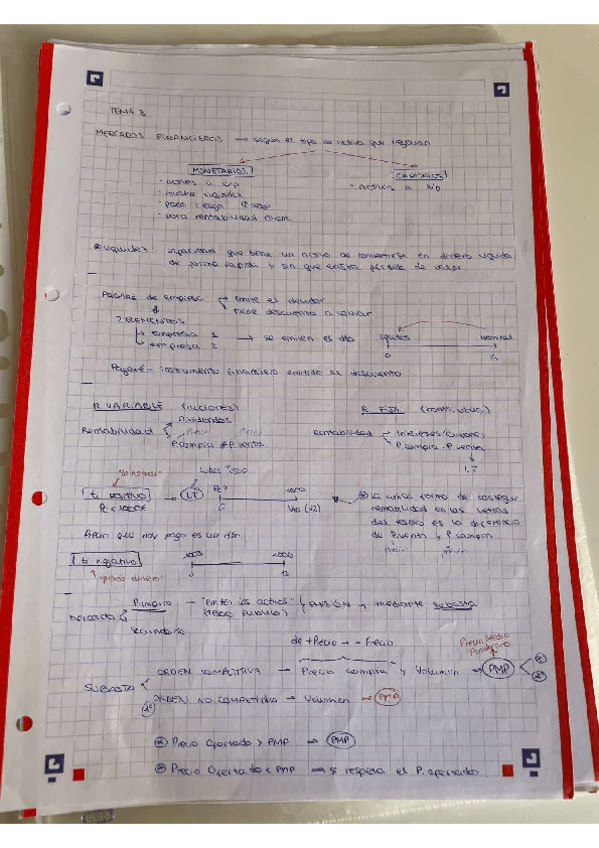 TEMA 3
MERCADOS FINANCIEROS → según el tipo de activo que negocian
MONETARIOS
· activos a c/p
· mucha liquidez
· poco riesgo
· poca rentabilidad
· activos a
liquidez capacidad que tiene un activo de convertirse en dinero líquido
de forma rápida y sin que exista pérdida de valor.
Pagarés de empresa emite el deudor
tiene descuento a
2 ELEMENTOS
empresa 1 → se emiten al dto
empresa 2
Efectivo Nominal
0
Pagaré - instrumento financiero emitido al descuento
R. VARIABLE (acciones)
Rentabilidad Dividendos
P. compra P. venta
R. FIJA
Rentabilidad Intereses/Cupones
P. compra - P. venta
LT
"lo normal"
Letras Tesoro
ti positivo → LT
P < 1000€
P? 1000
0 Vto (12)
La única forma de conseguir
rentabilidad en las letras
del tesoro es la diferencia
de P. venta y P. compra
que hoy pago es un
ti negativo
1003 1000
0 12
"pierdo dinero"
Mercado Primario → "Emiten los activos" EMISIÓN → mediante subasta
(TESORO PÚBLICO)
Secundario
de + Precio → - Precio
Precio Medio
Ponderado
SUBASTA
ORDEN COMPETITIVA → Precio compra y Volumen → PMP
ORDEN NO COMPETITIVA → Volumen → PMP
Precio Ofertado > PMP → PMP
Precio Ofertado < PMP → se respeta el P. ofertado